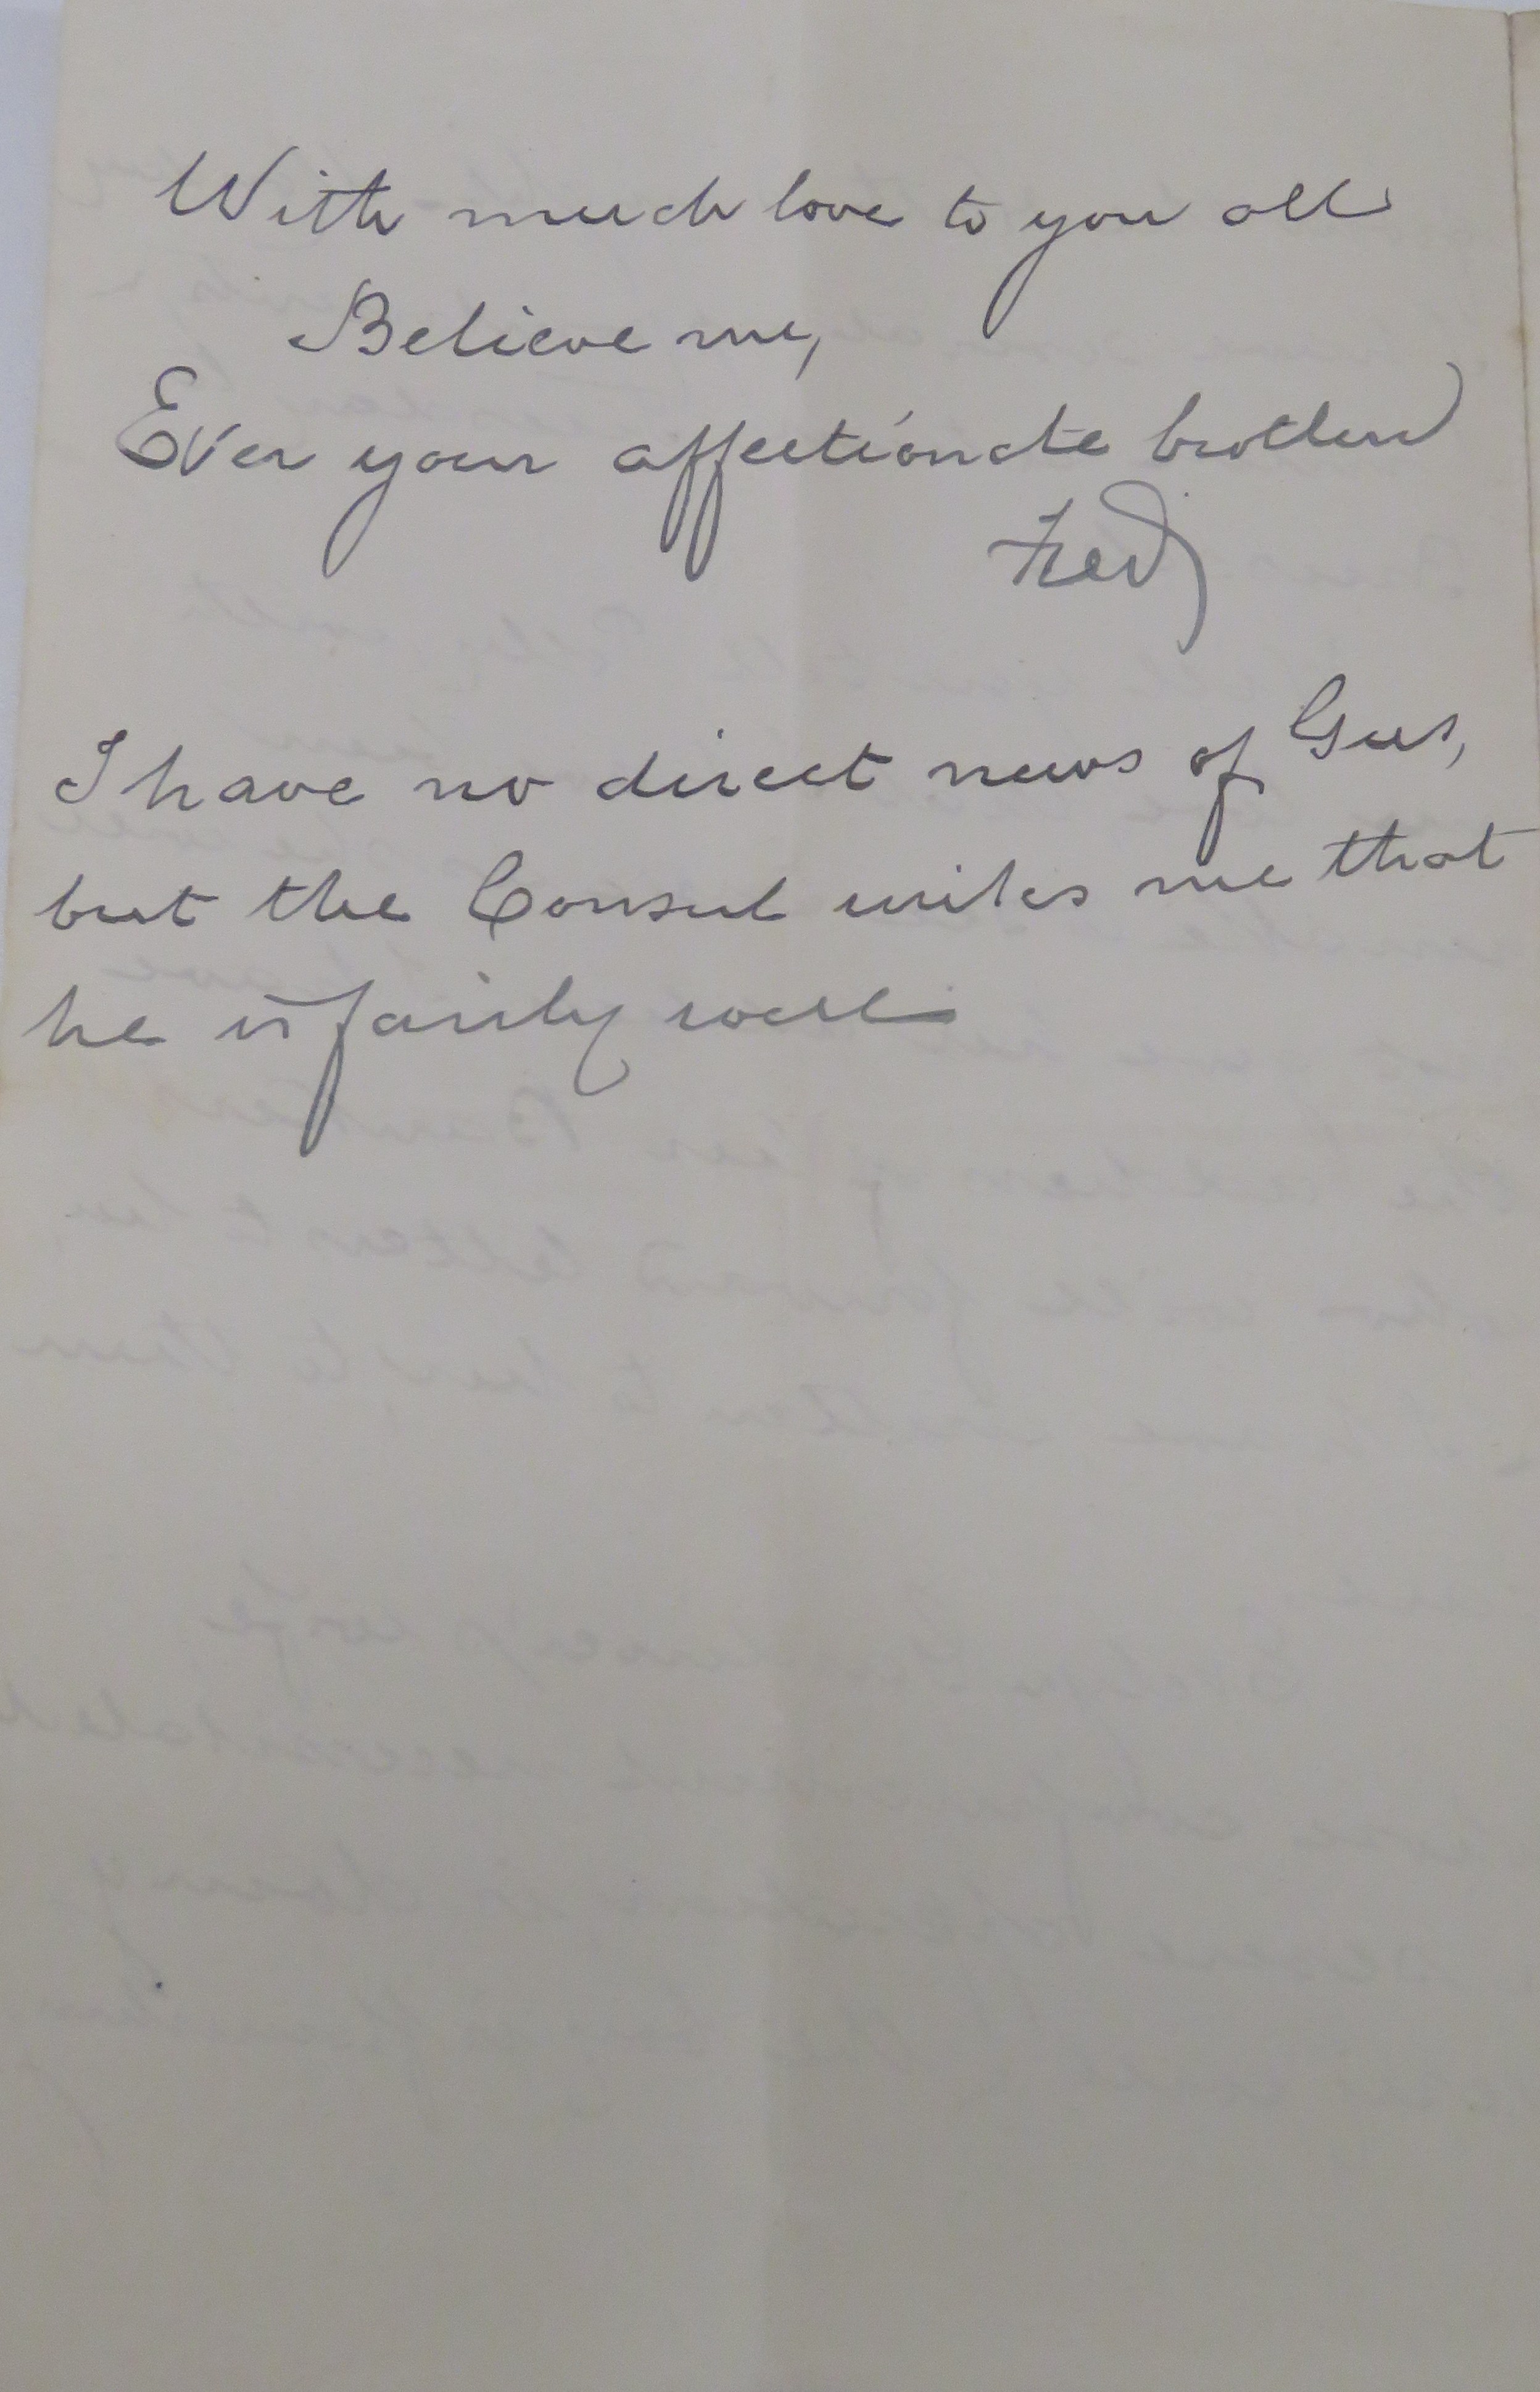 With much love to you all
Believe me,
Ever your affectionate brother
Fred
I have no direct news of Gus,
but the Consul writes me that
he is fairly well